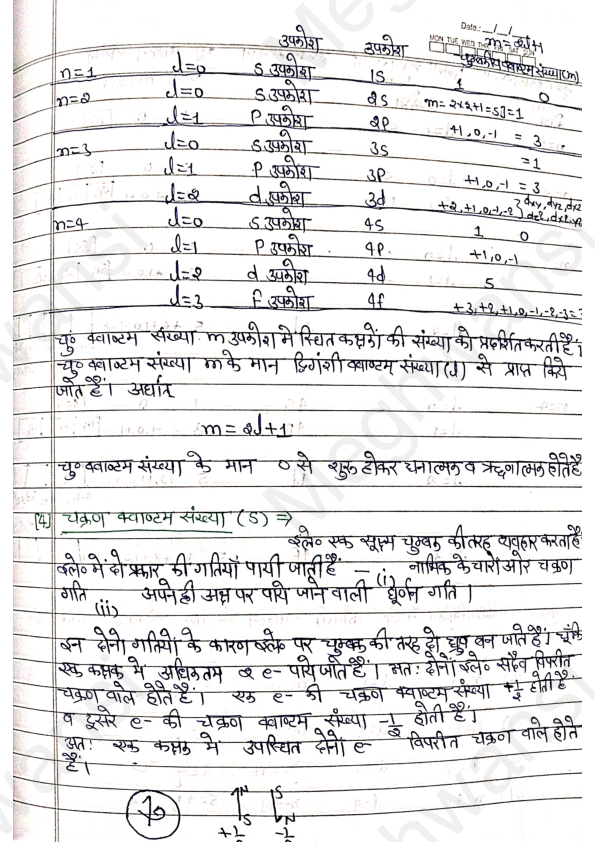 Data: _/_/_
MON TUE WED THU FRI SAT SUN
m=2l+1
उपकोश उपकोश चुम्बकीय क्वाण्टम संख्या(m)
n=1 l=0 s उपकोश 1s 1 0
n=2 l=0 s उपकोश 2s m=2x2+1=5]=1
l=1 P उपकोश 2p +1,0,-1 = 3
n=3 l=0 s उपकोश 3s =1
l=1 P उपकोश 3p +1,0,-1 = 3
l=2 d उपकोश 3d +2,+1,0,-1,-2 } dxy, dyz, dxz
n=4 l=0 s उपकोश 4s 1 0
l=1 P उपकोश 4p +1,0,-1
l=2 d उपकोश 4d 5
l=3 f उपकोश 4f +3,+2,+1,0,-1,-2,-3=
चु० क्वाण्टम संख्या m उपकोश मे स्थित कक्षकों की संख्या को प्रदर्शित करती हैं।
चु० क्वाण्टम संख्या m के मान द्विगंशी क्वाण्टम संख्या (l) से प्राप्त किये
जाते हैं। अर्थात्
m = 2l+1
चु० क्वाण्टम संख्या के मान 0 से शुरू होकर धनात्मक व ऋणात्मक होते है
[4] चक्रण क्वाण्टम संख्या (S) ⇒
इले० एक सूक्ष्म चुम्बक की तरह व्यवहार करता है
इले० में दो प्रकार की गतियाँ पायी जाती हैं – (i) नाभिक के चारों ओर चक्रण
गति (ii) अपने ही अक्ष पर पाये जाने वाली घूर्णन गति।
इन दोनो गतियों के कारण इले० पर चुम्बक की तरह दो ध्रुव बन जाते हैं। चूंकि
एक कक्षक मे अधिकतम 2 e- पाये जाते हैं। अतः दोनों इले० सदैव विपरीत
चक्रण वाले होते हैं। एक e- की चक्रण क्वाण्टम संख्या +1/2 होती हैं
व दूसरे e- की चक्रण क्वाण्टम संख्या -1/2 होती हैं।
अतः एक कक्षक मे उपस्थित दोनों e- विपरीत चक्रण वाले होते
हैं।
N S
S N
+1 -1